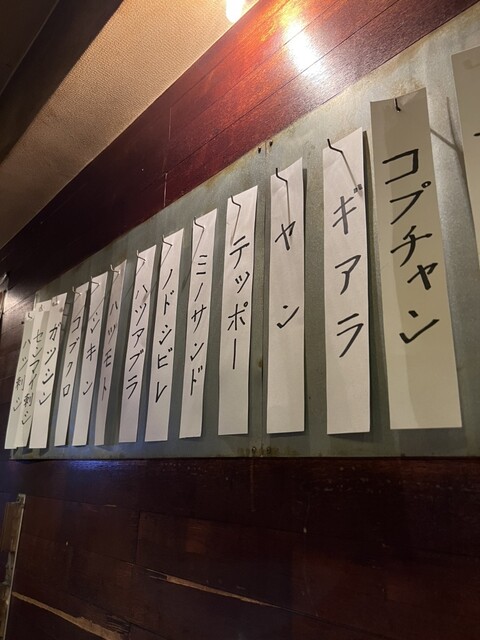 コプチャン
ギアラ
ヤン
テッポー
ミノサンド
ノドシビレ
ハツアブラ
ハツモト
シキン
コブクロ
ガツシン
センマイ刺シ
ハツ刺シ